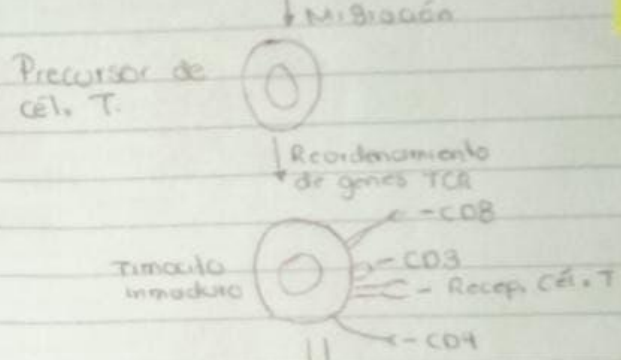 Migración
Precursor de
cél. T.
Reordenamiento
de genes TCR
-CD8
Timocito
inmaduro
-CD3
- Recep. Cél. T
-CD4